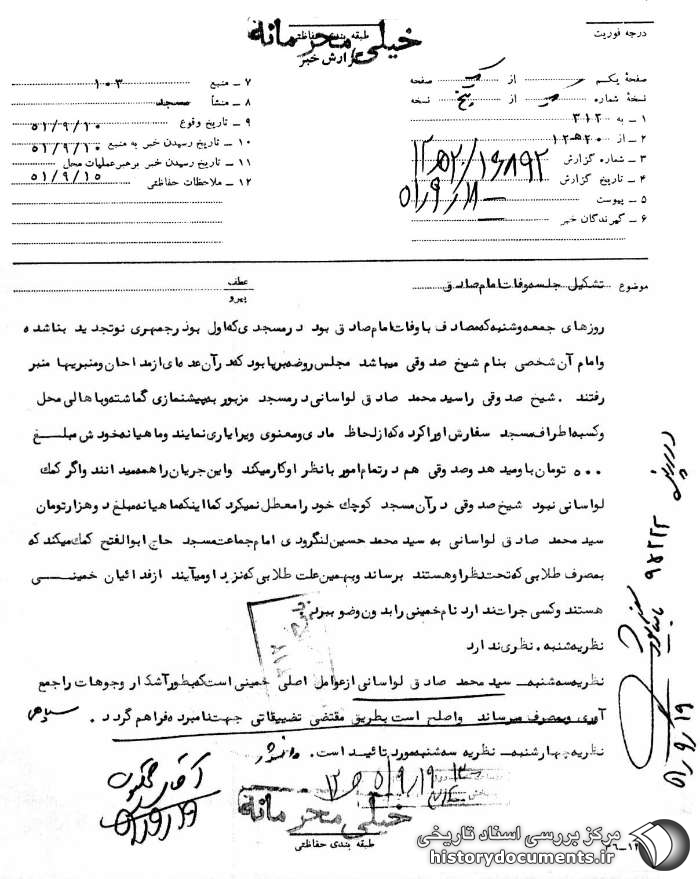 درجه فوریت
طبقه بندی حفاظتی
خیلی محرمانه
گزارش خبر
صفحهٔ یکم از یک صفحه
نسخهٔ شماره از پنج نسخه
۱ ــ به ۳۱۲
۲ ــ از ۲۰ ه‍ ۱۲
۳ ــ شماره گزارش ۱۶۸۹۲/۲۰ ه‍ ۱۲
۴ ــ تاریخ گزارش ۵۱/۹/۱۸
۵ ــ پیوست
۶ ــ گیرندگان خبر
۷ ــ منبع ۱۰۳
۸ ــ منشأ مسجد
۹ ــ تاریخ وقوع ۵۱/۹/۱۰
۱۰ ــ تاریخ رسیدن خبر به منبع ۵۱/۹/۱۰
۱۱ ــ تاریخ رسیدن خبر برهبر عملیات محل ۵۱/۹/۱۵
۱۲ ــ ملاحظات حفاظتی
موضوع تشکیل جلسه وفات امام صادق
عطف
پیرو
روزهای جمعه و شنبه که مصادف با وفات امام صادق بود در مسجدی که اول بوذرجمهری نو تجدید بنا شده
و امام آن شخصی بنام شیخ صدوقی میباشد مجلس روضه برپا بود که در آن عده‌ای از مداحان و منبریها منبر
رفتند . شیخ صدوقی را سید محمد صادق لواسانی در مسجد مزبور به پیشنمازی گماشته و با هالی محل
و کسبه اطراف مسجد سفارش او را کرده که از لحاظ مادی و معنوی ویرا یاری نمایند و ماهیانه خودش مبلغ
۵۰۰ تومان باو میدهد و صدوقی هم در تمام امور با نظر او کار میکند و این جریان را همه میدانند و اگر کمک
لواسانی نبود شیخ صدوقی در آن مسجد کوچک خود را معطل نمیکرد کما اینکه ماهیانه مبلغ دو هزار تومان
سید محمد صادق لواسانی به سید محمد حسین لنگرودی امام جماعت مسجد حاج ابوالفتح کمک میکند که
بمصرف طلابی که تحت نظر او هستند برساند و بهمین علت طلابی که نزد او میآیند از فدائیان خمینی
هستند و کسی جرات ندارد نام خمینی را بدون وضو ببرد
نظریه شنبه . نظری ندارد
نظریه سه شنبه ــ سید محمد صادق لواسانی از عوامل اصلی خمینی است که بطور آشکار وجوهات را جمع
آوری و بمصرف میرساند و اصلح است بطریق مقتضی تضییقاتی جهت نامبرده فراهم گردد .
نظریه چهارشنبه ــ نظریه سه شنبه مورد تائید است .
۵۱/۹/۱۹
۹۵۲۲۳
آقای
۵۱/۹/۱۹
خیلی محرمانه
طبقه بندی حفاظتی
مرکز بررسی اسناد تاریخی
historydocuments.ir